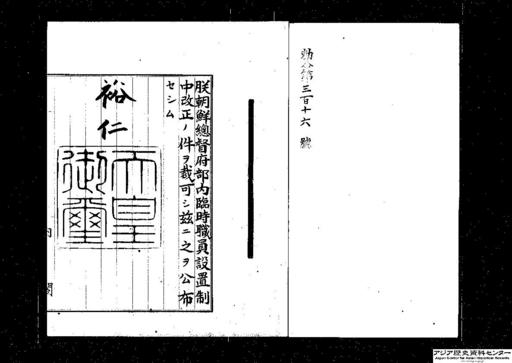 勅令第三百十六號
朕朝鮮總督府部內臨時職員設置制
中改正ノ件ヲ裁可シ茲ニ之ヲ公布
セシム
裕仁
天皇
御璽
内閣
アジア歴史資料センター
Japan Center for Asian Historical Records